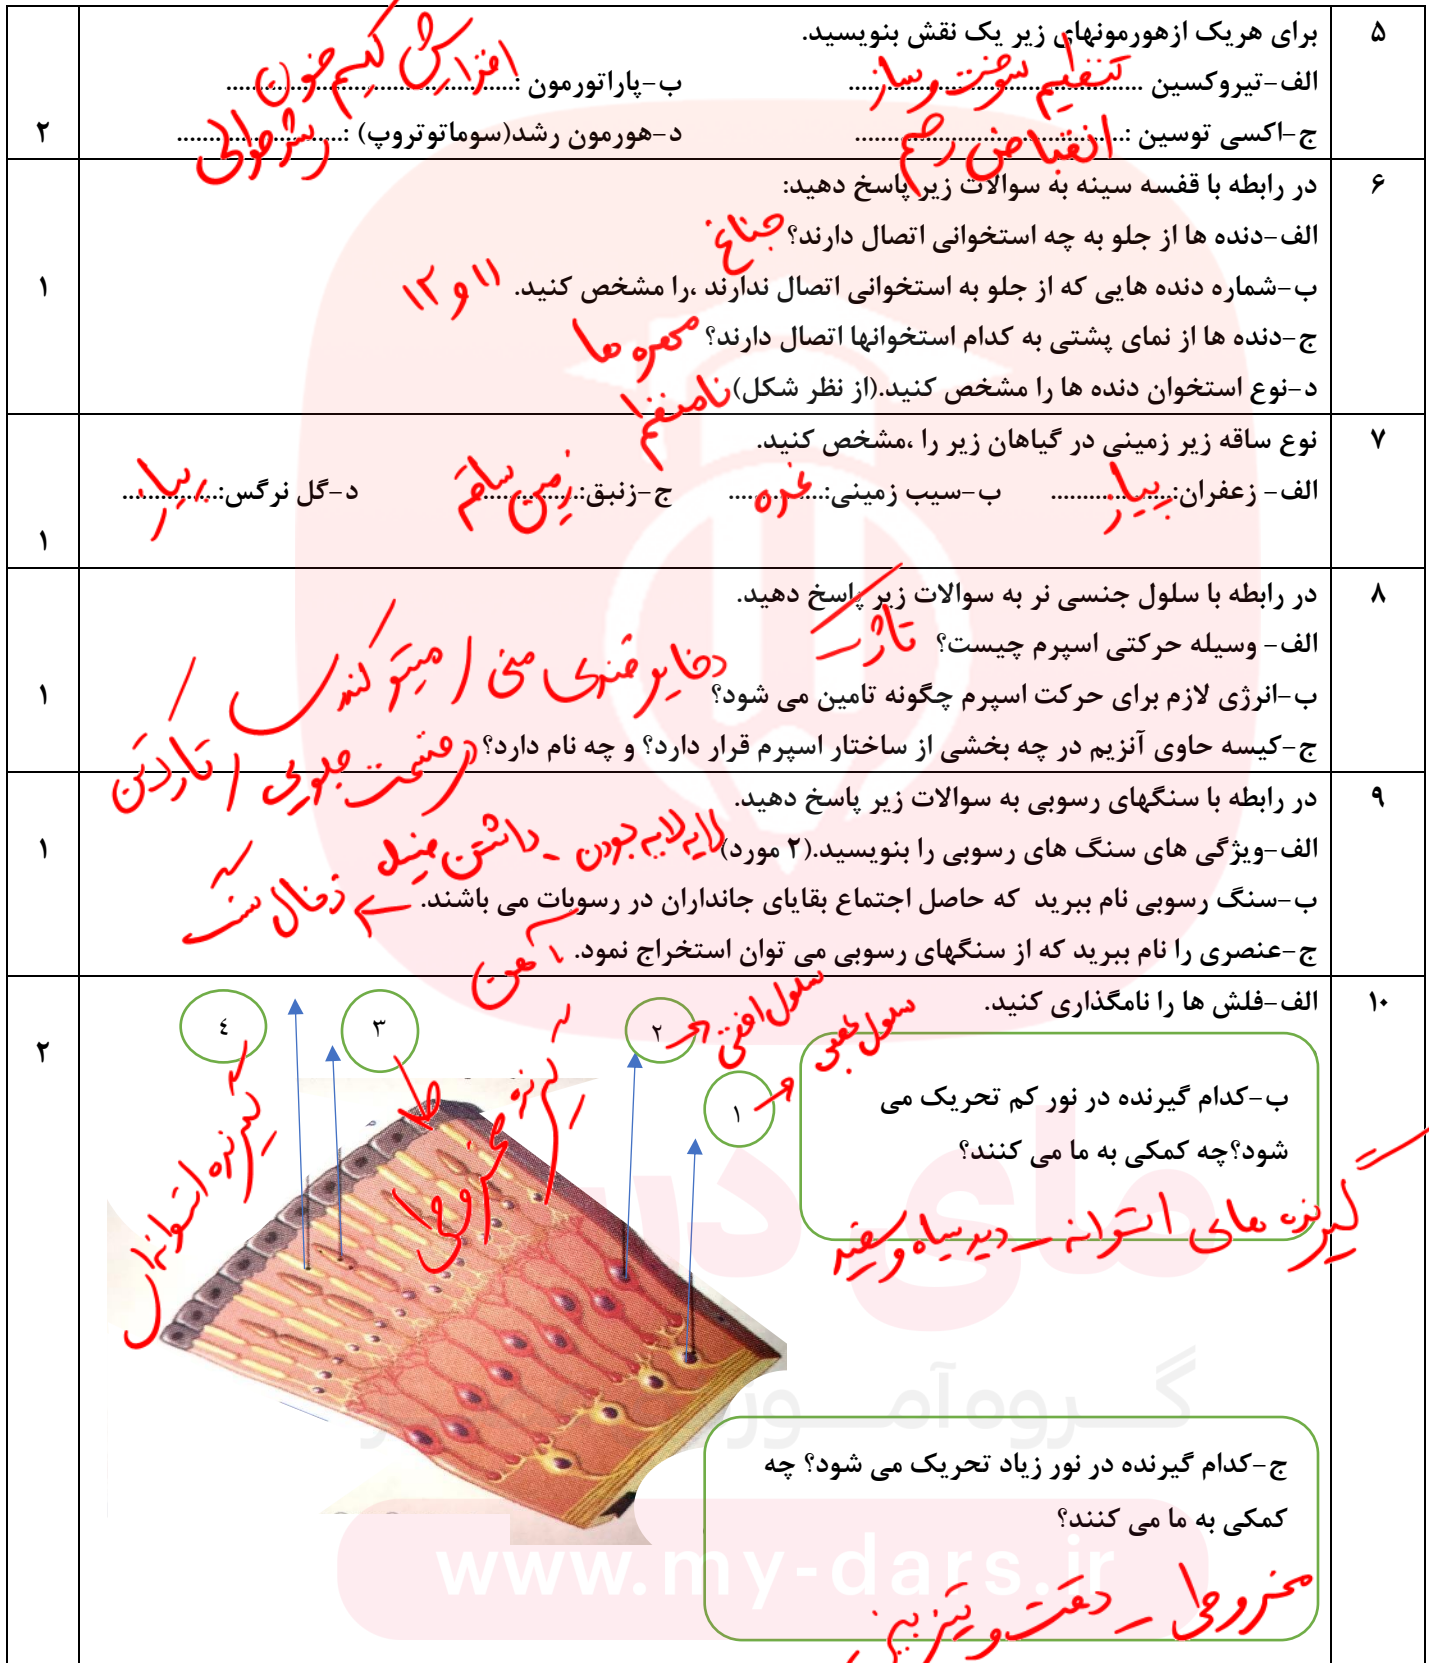 ۵
برای هریک ازهورمونهای زیر یک نقش بنویسید.
الف-تیروکسین .............................................. تنظیم سوخت و ساز ب-پاراتورمون :............................................. افزایش کلسیم خون
ج-اکسی توسین :.......................................... انقباض رحم د-هورمون رشد(سوماتوتروپ) :.......................... رشد طولی
۲
۶
در رابطه با قفسه سینه به سوالات زیر پاسخ دهید:
الف-دنده ها از جلو به چه استخوانی اتصال دارند؟ جناغ
ب-شماره دنده هایی که از جلو به استخوانی اتصال ندارند ،را مشخص کنید. ۱۱ و ۱۲
ج-دنده ها از نمای پشتی به کدام استخوانها اتصال دارند؟ مهره ها
د-نوع استخوان دنده ها را مشخص کنید.(از نظر شکل) نامنظم
۱
۷
نوع ساقه زیر زمینی در گیاهان زیر را ،مشخص کنید.
الف- زعفران:................... پیاز ب-سیب زمینی:............... غده ج-زنبق:................. زمین ساقه د-گل نرگس:............... پیاز
۱
۸
در رابطه با سلول جنسی نر به سوالات زیر پاسخ دهید.
الف- وسیله حرکتی اسپرم چیست؟ تاژک
ب-انرژی لازم برای حرکت اسپرم چگونه تامین می شود؟ قندی منی / میتوکندری
ج-کیسه حاوی آنزیم در چه بخشی از ساختار اسپرم قرار دارد؟ و چه نام دارد؟ در قسمت جلویی / تارکتن
۱
۹
در رابطه با سنگهای رسوبی به سوالات زیر پاسخ دهید.
الف-ویژگی های سنگ های رسوبی را بنویسید.(۲ مورد) لایه لایه بودن - داشتن فسیل
ب-سنگ رسوبی نام ببرید که حاصل اجتماع بقایای جانداران در رسوبات می باشند. زغال سنگ
ج-عنصری را نام ببرید که از سنگهای رسوبی می توان استخراج نمود. آهن
۱
۱۰
الف-فلش ها را نامگذاری کنید.
۲
۱ سلول عصبی
۲ سلول افقی
۳ گیرنده مخروطی
٤ گیرنده استوانه ای
ب-کدام گیرنده در نور کم تحریک می
شود؟چه کمکی به ما می کنند؟
گیرنده های استوانه - دید سیاه و سفید
ج-کدام گیرنده در نور زیاد تحریک می شود؟ چه
کمکی به ما می کنند؟
مخروطی - دقت و تیزبینی
مای درس
گروه آموزشی
www.my-dars.ir